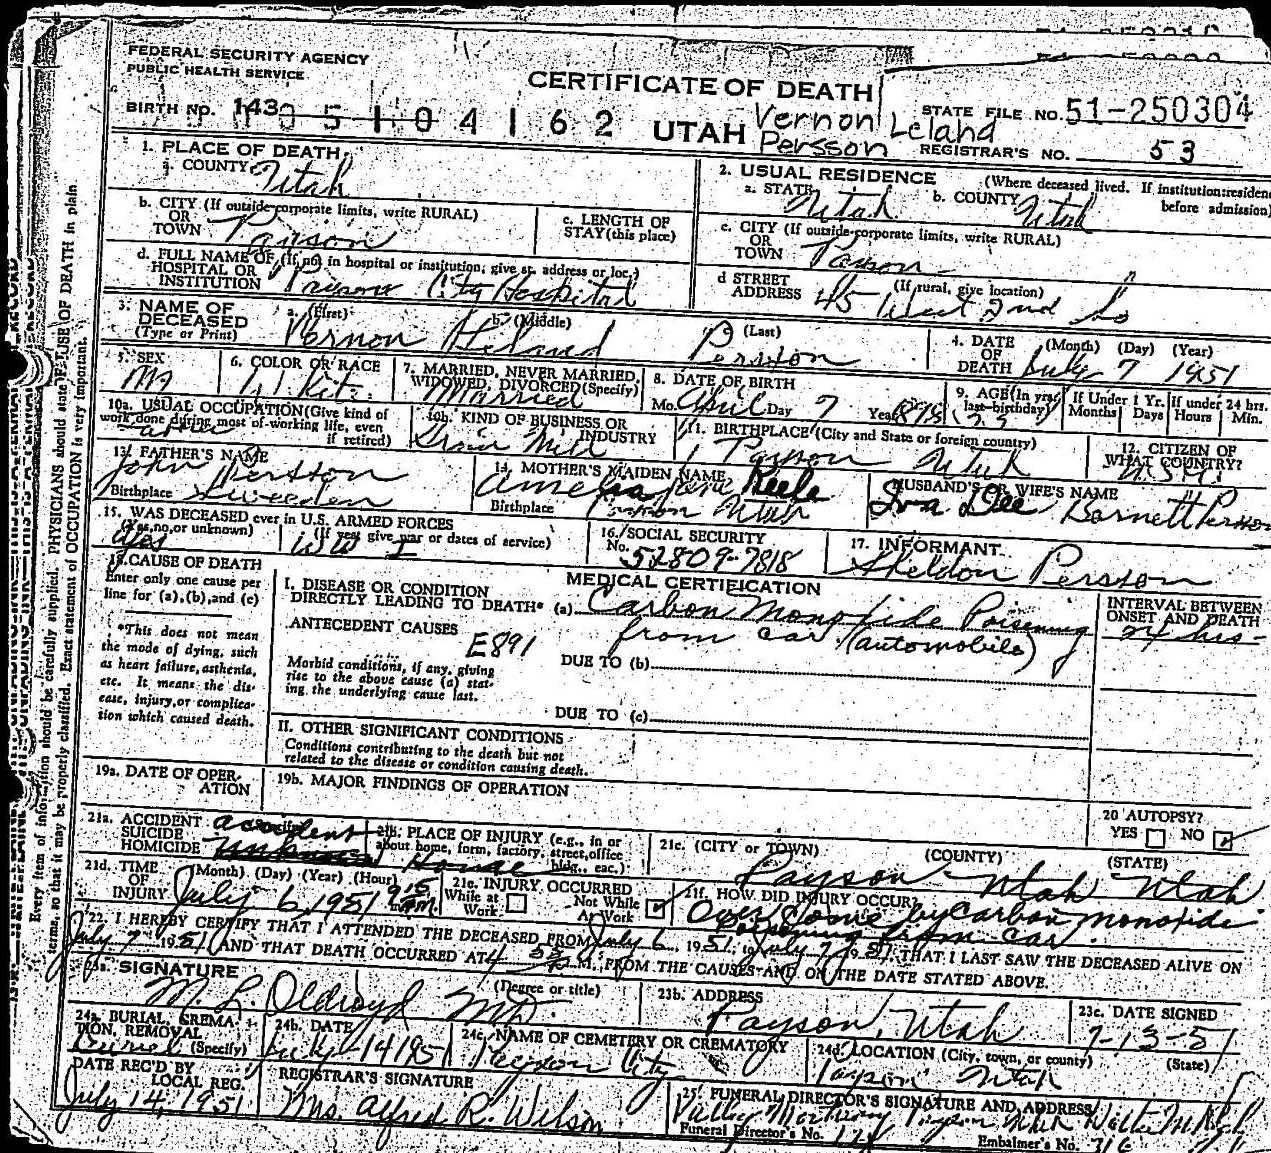 FEDERAL SECURITY AGENCY
PUBLIC HEALTH SERVICE
CERTIFICATE OF DEATH
STATE FILE NO. 51-250304
BIRTH NO. 143 05104162 UTAH Vernon Leland
Persson
REGISTRAR'S NO. 53
1. PLACE OF DEATH
a. COUNTY Utah
2. USUAL RESIDENCE (Where deceased lived. If institution: residence before admission)
a. STATE Utah b. COUNTY Utah
b. CITY (If outside corporate limits, write RURAL)
OR
TOWN Payson
c. LENGTH OF
STAY (this place)
c. CITY (If outside corporate limits, write RURAL)
OR
TOWN Payson
d. FULL NAME OF (If not in hospital or institution, give st. address or loc.)
HOSPITAL OR
INSTITUTION Payson City Hospital
d STREET (If rural, give location)
ADDRESS 45 West 2nd So
3. NAME OF
DECEASED
(Type or Print)
a. (First) Vernon
b. (Middle) Leland
(Last) Persson
4. DATE (Month) (Day) (Year)
OF
DEATH July 7 1951
5. SEX
M
6. COLOR OR RACE
White
7. MARRIED, NEVER MARRIED,
WIDOWED, DIVORCED (Specify)
Married
8. DATE OF BIRTH
Mo. April Day 7 Year
9. AGE (In yrs.
last birthday)
If Under 1 Yr.
Months Days
If under 24 hrs.
Hours Min.
10a. USUAL OCCUPATION (Give kind of
work done during most of working life, even
if retired)
10b. KIND OF BUSINESS OR
INDUSTRY
11. BIRTHPLACE (City and State or foreign country)
Payson Utah
12. CITIZEN OF
WHAT COUNTRY?
U.S.A.
13. FATHER'S NAME
John Persson
Birthplace Sweeden
14. MOTHER'S MAIDEN NAME
Amelia Jane Keele
Birthplace Payson Utah
HUSBAND'S OR WIFE'S NAME
Iva Dee Barnett Persson
15. WAS DECEASED ever in U.S. ARMED FORCES
(Yes, no, or unknown) (If yes, give war or dates of service)
Yes WW I
16. SOCIAL SECURITY
No. 52809-7818
17. INFORMANT
Sheldon Persson
18. CAUSE OF DEATH
Enter only one cause per
line for (a), (b), and (c)
*This does not mean
the mode of dying, such
as heart failure, asthenia,
etc. It means the dis-
ease, injury, or complica-
tion which caused death.
MEDICAL CERTIFICATION
I. DISEASE OR CONDITION
DIRECTLY LEADING TO DEATH* (a) Carbon Monoxide Poisening
from car (automobile)
ANTECEDENT CAUSES
E891
Morbid conditions, if any, giving
rise to the above cause (a) stat-
ing the underlying cause last.
DUE TO (b)
DUE TO (c)
INTERVAL BETWEEN
ONSET AND DEATH
24 hrs
II. OTHER SIGNIFICANT CONDITIONS
Conditions contributing to the death but not
related to the disease or condition causing death.
19a. DATE OF OPER-
ATION
19b. MAJOR FINDINGS OF OPERATION
20 AUTOPSY?
YES NO
21a. ACCIDENT accident
SUICIDE
HOMICIDE
21b. PLACE OF INJURY (e.g., in or
about home, form, factory, street, office
bldg., eac.)
Home
21c. (CITY or TOWN) (COUNTY) (STATE)
Payson Utah Utah
21d. TIME (Month) (Day) (Year) (Hour)
OF
INJURY July 6, 1951 9:15
21e. INJURY OCCURRED
While at
Work
Not While
At Work
21f. HOW DID INJURY OCCUR?
Over Come by Carbon Monoxide
Poisoning from car.
22. I HEREBY CERTIFY THAT I ATTENDED THE DECEASED FROM July 6, 1951, to July 7, 1951, THAT I LAST SAW THE DECEASED ALIVE ON
July 7 1951, AND THAT DEATH OCCURRED AT M., FROM THE CAUSES AND ON THE DATE STATED ABOVE.
23a. SIGNATURE (Degree or title)
M. L. Oldroyd MD.
23b. ADDRESS
Payson, Utah
23c. DATE SIGNED
7-13-51
24a. BURIAL, CREMA-
TION, REMOVAL
(Specify)
Buriel
24b. DATE
July 14 1951
24c. NAME OF CEMETERY OR CREMATORY
Payson City
24d. LOCATION (City, town, or county) (State)
Payson Utah
DATE REC'D BY
LOCAL REG.
July 14, 1951
REGISTRAR'S SIGNATURE
Mrs. Alfred R. Wilson
25. FUNERAL DIRECTOR'S SIGNATURE AND ADDRESS
Mortuary Payson Utah
Funeral Director's No.
Embalmer's No. 316
Every item of information should be carefully supplied. PHYSICIANS should state CAUSE OF DEATH in plain
terms, so that it may be properly classified. Exact statement of OCCUPATION is very important.